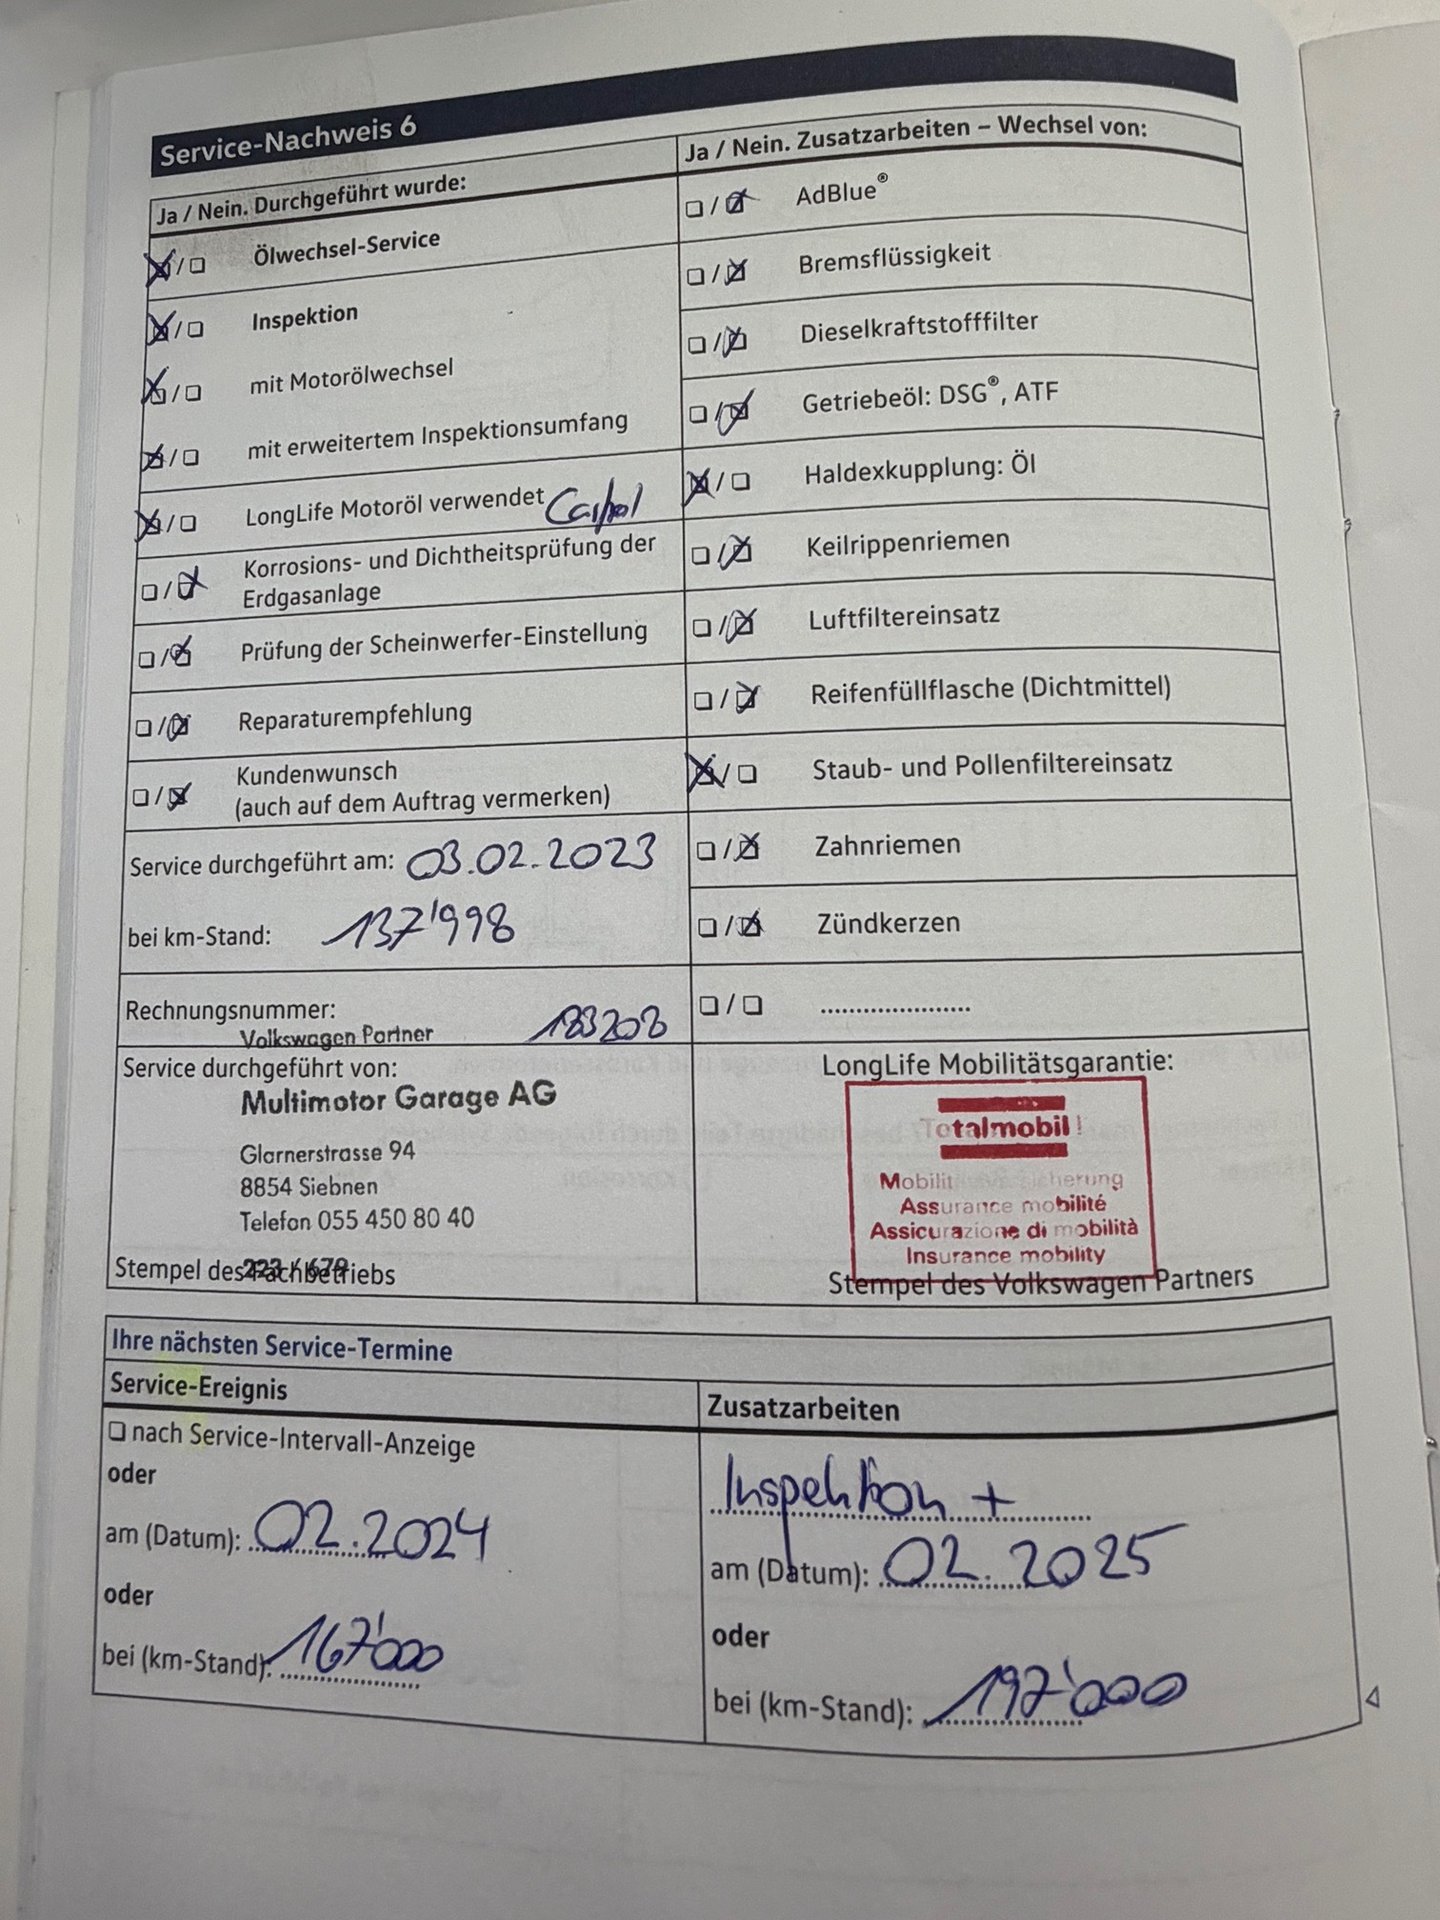 Service-Nachweis 6
Ja / Nein. Durchgeführt wurde:
☒ / ☐ Ölwechsel-Service
☒ / ☐ Inspektion
☒ / ☐ mit Motorölwechsel
☒ / ☐ mit erweitertem Inspektionsumfang
☒ / ☐ LongLife Motoröl verwendet
☐ / ☒ Korrosions- und Dichtheitsprüfung der
Erdgasanlage
☐ / ☒ Prüfung der Scheinwerfer-Einstellung
☐ / ☒ Reparaturempfehlung
☐ / ☒ Kundenwunsch
(auch auf dem Auftrag vermerken)
Service durchgeführt am: 03.02.2023
bei km-Stand: 137'998
Rechnungsnummer:
Volkswagen Partner
Service durchgeführt von:
Multimotor Garage AG
Glarnerstrasse 94
8854 Siebnen
Telefon 055 450 80 40
223 / 679
Stempel des Fachbetriebs
Ja / Nein. Zusatzarbeiten – Wechsel von:
☐ / ☒ AdBlue®
☐ / ☒ Bremsflüssigkeit
☐ / ☒ Dieselkraftstofffilter
☐ / ☒ Getriebeöl: DSG®, ATF
☒ / ☐ Haldexkupplung: Öl
☐ / ☒ Keilrippenriemen
☐ / ☒ Luftfiltereinsatz
☐ / ☒ Reifenfüllflasche (Dichtmittel)
☒ / ☐ Staub- und Pollenfiltereinsatz
☐ / ☒ Zahnriemen
☐ / ☒ Zündkerzen
☐ / ☐ ....................
LongLife Mobilitätsgarantie:
Totalmobil!
Assurance mobilité
Assicurazione di mobilità
Insurance mobility
Stempel des Volkswagen Partners
Ihre nächsten Service-Termine
Service-Ereignis
☐ nach Service-Intervall-Anzeige
oder
am (Datum): 02.2024
oder
bei (km-Stand): 167'000
Zusatzarbeiten
Inspektion +
am (Datum): 02.2025
oder
bei (km-Stand): 197'000